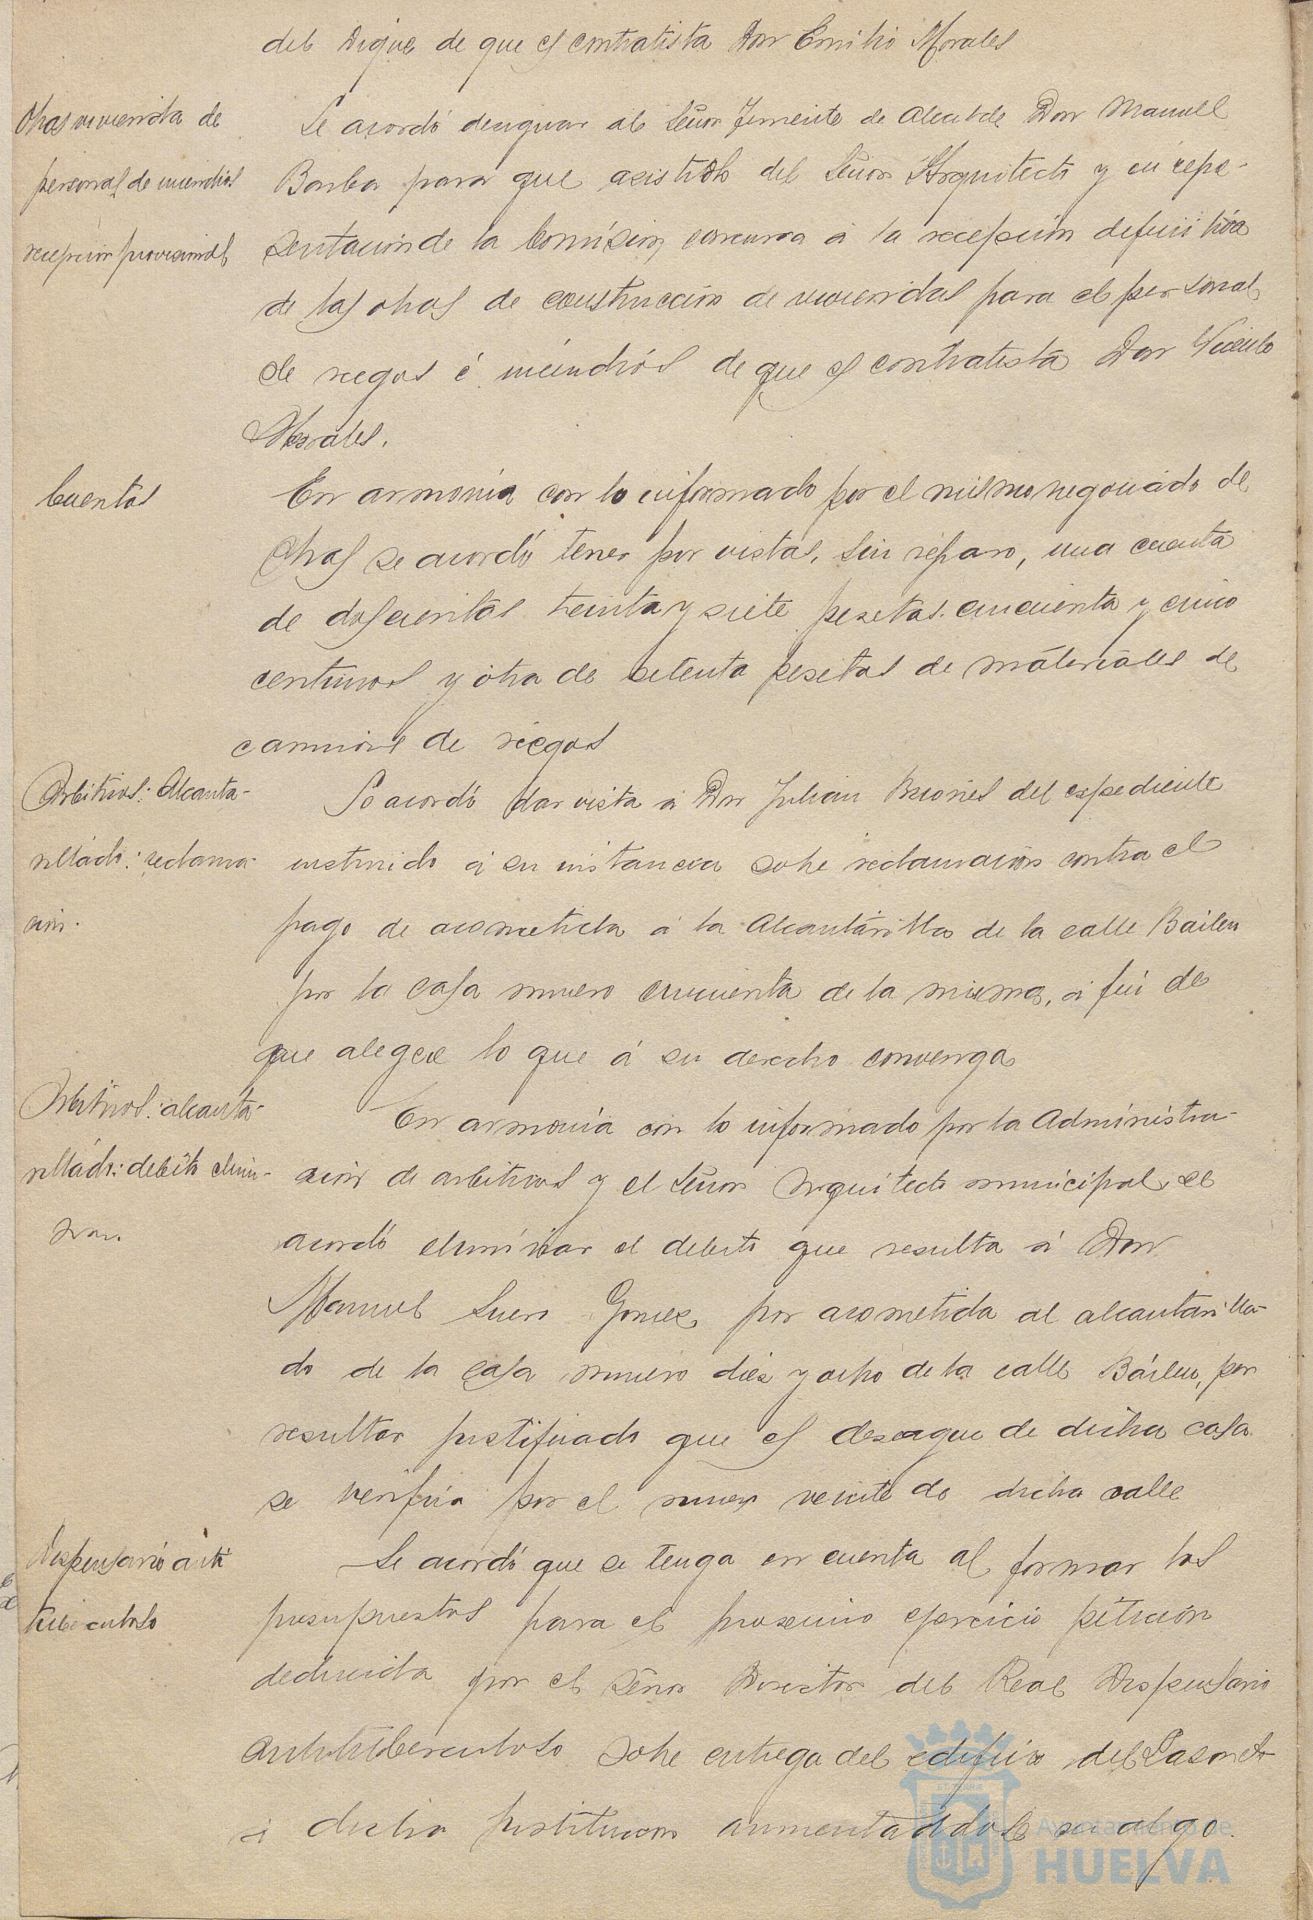 del Dique de que es contratista Don Emilio Morales
Obras vivienda de
personal de incendios
recepción provisional
Se acordó designar al Señor Teniente de Alcalde Don Manuel
Barba para que asistido del Señor Arquitecto y en repre-
sentación de la Comisión, concurra á la recepción definitiva
de las obras de construcción de viviendas para el personal
de riegos é incendios de que es contratista Don
Morales.
Cuentas
En armonia con lo informado por el mismo negociado de
Obras se acordó tener por vistas, sin reparo, una cuenta
de doscientas treinta y siete pesetas cincuenta y cinco
centimos y otra de setenta pesetas de materiales de
camions de riegos
Arbitrios: Alcanta-
rillado: reclama-
ción.
Se acordó dar vista á Don Julian Briones del expediente
instruido á su instancia sobre reclamación contra el
pago de acometida á la Alcantarilla de la calle Bailen
por la casa numero cincuenta de la misma, á fin de
que alegue lo que á su derecho convenga
Arbitrios: alcanta-
rillado: debito elimi-
nar.
En armonía con lo informado por la Administra-
ción de arbitrios y el Señor Arquitecto municipal, se
acordó eliminar el debito que resulta á Don
Manuel Suero Gomez, por acometida al alcantarilla-
do de la casa numero diez y ocho de la calle Bailen, por
resultar justificado que el desague de dicha casa
se verifica por el numero veinte de dicha calle
Dispensario anti
tuberculoso
Se acordó que se tenga en cuenta al formar los
presupuestos para el proximo ejercicio petición
deducida por el Señor Director del Real Dispensario
Antituberculoso sobre entrega del edificio del
á dicha Institucion aumentandole en algo.
Ayuntamiento de
HUELVA